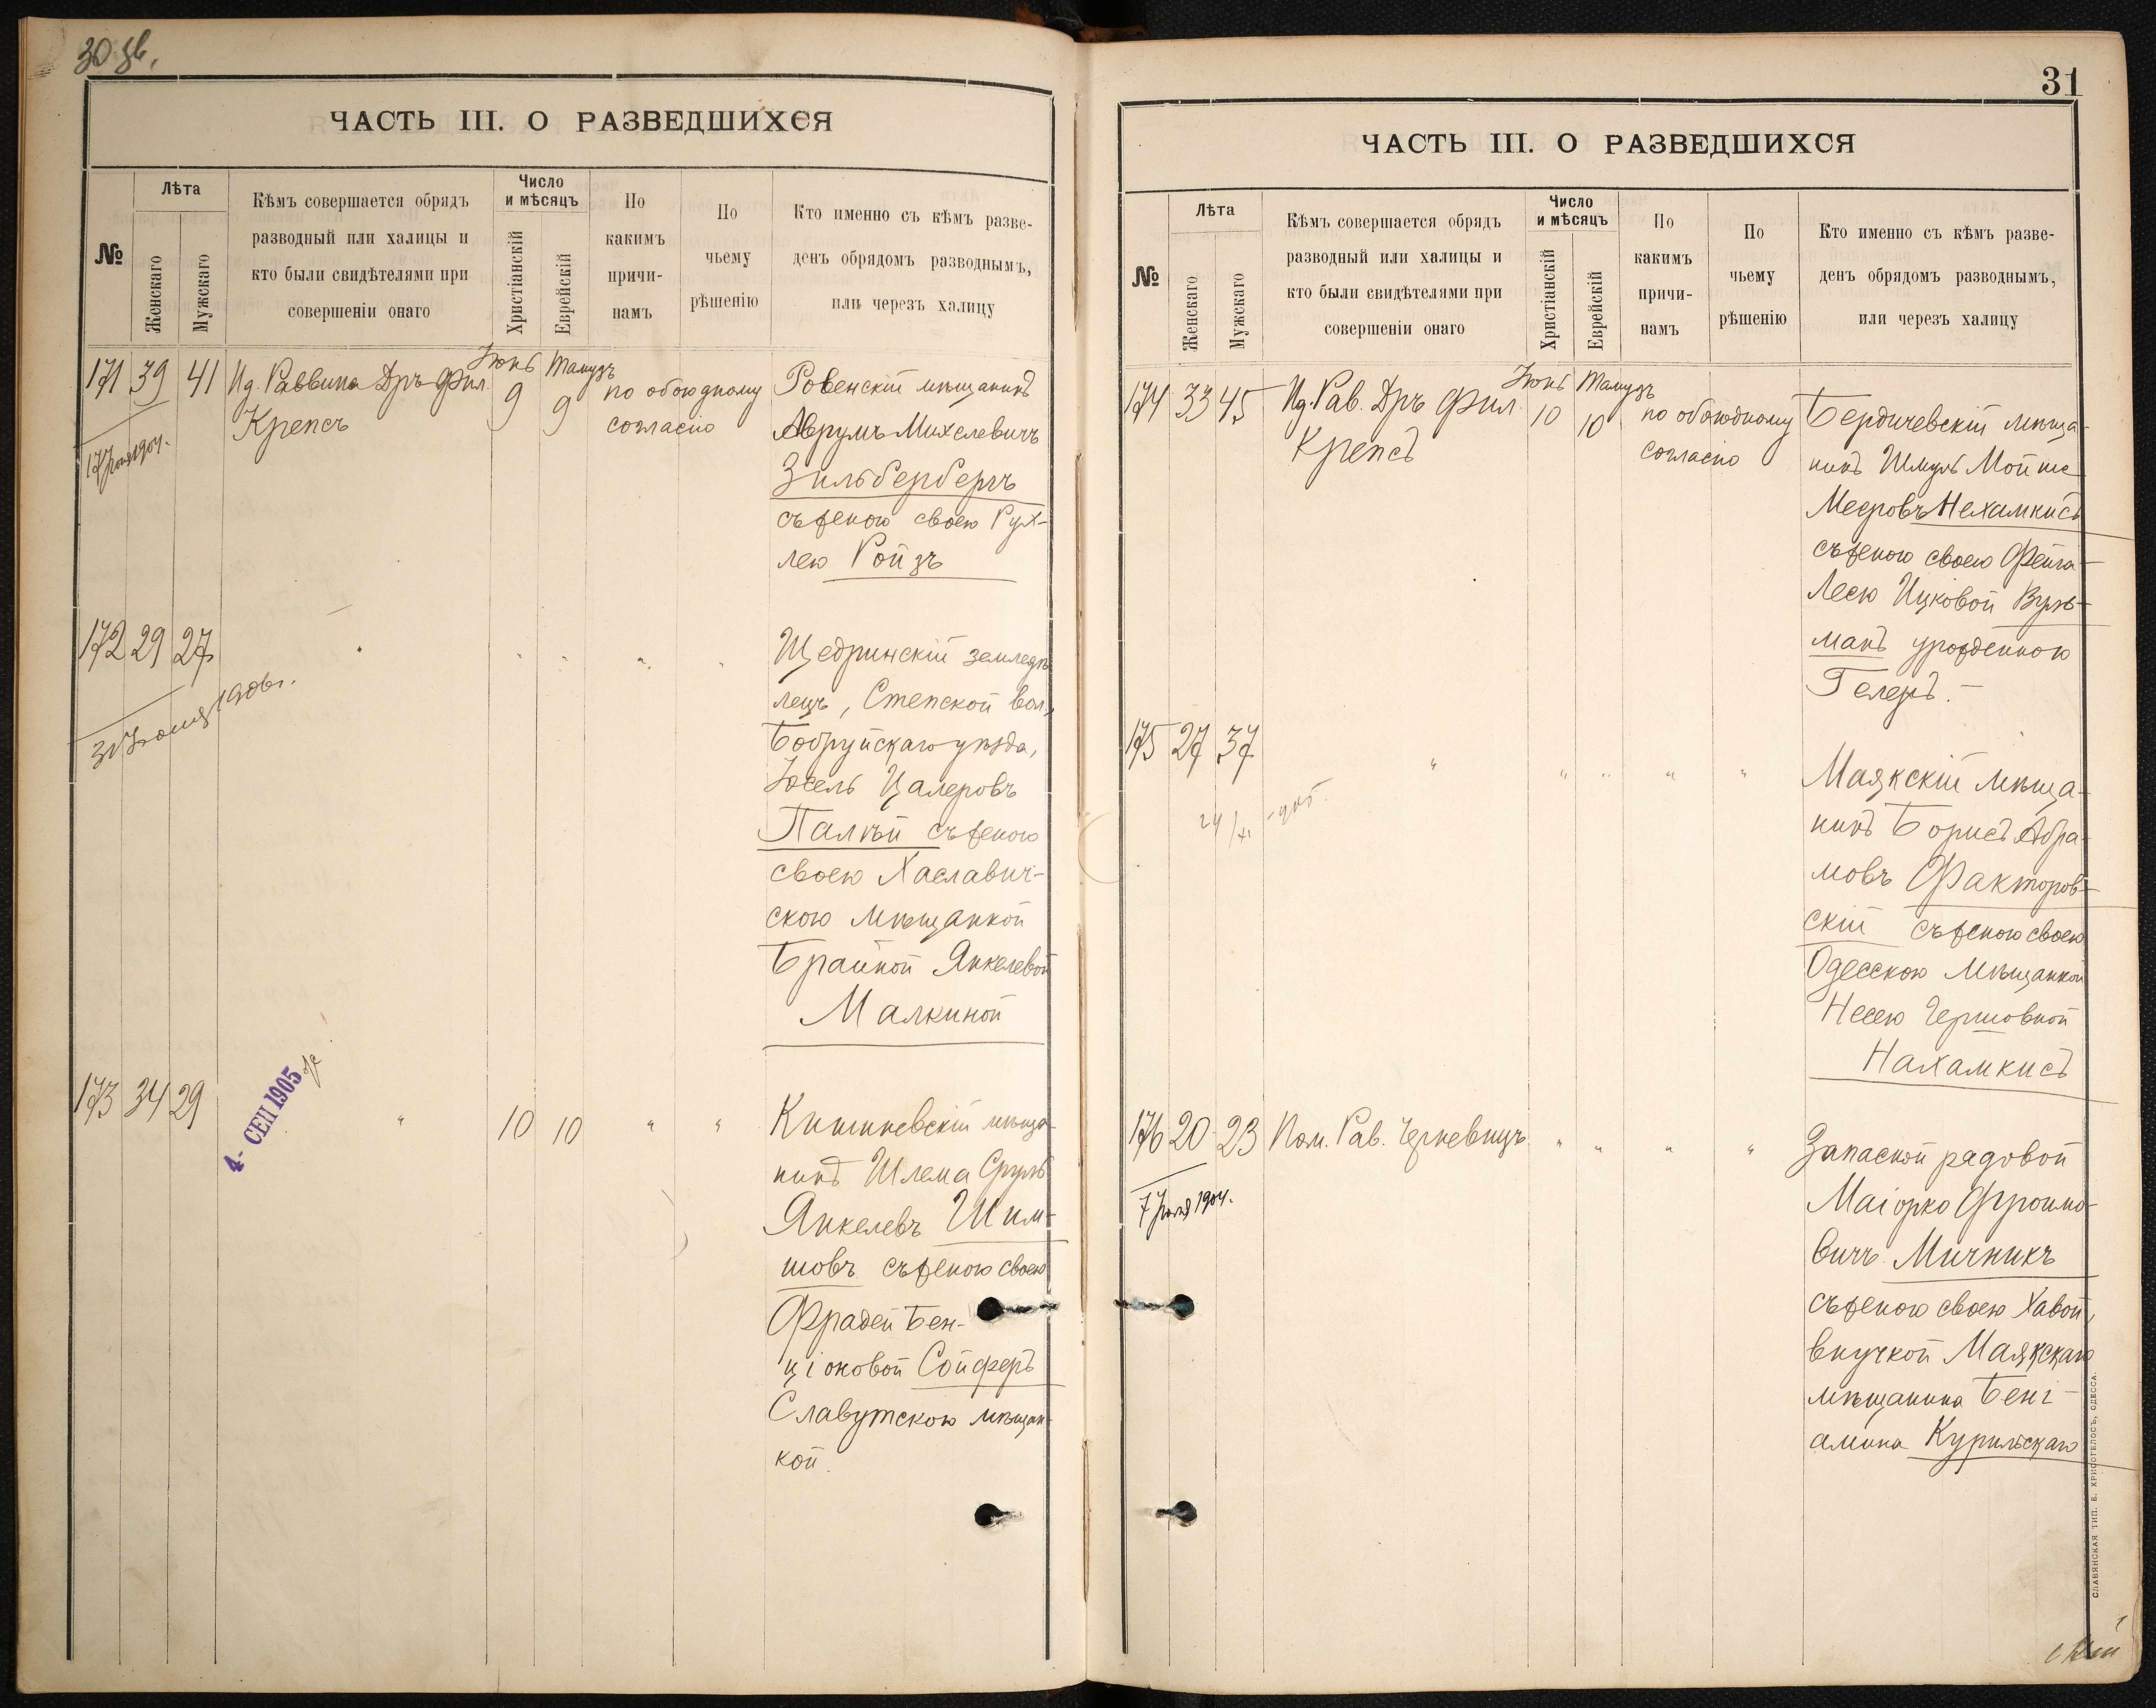 ЧАСТЬ III. О РАЗВЕДШИХСЯ
№
Лѣта
Женскаго
Мужскаго
Кѣмъ совершается обрядъ
разводный или халицы и
кто были свидѣтелями при
совершеніи онаго
Число
и мѣсяцъ
Христіанскій
Еврейскій
По
какимъ
причи-
намъ
По
чьему
рѣшенію
Кто именно съ кѣмъ разве-
денъ обрядомъ разводнымъ,
или черезъ халицу
171 39 41 Ид. Раввина Дръ Фил.
Крепсъ
Іюнь 9
Тамузъ 9
по обоюдному
согласію
Ровенскій мѣщанинъ
Аврумъ Михелевичъ
Зильбербергъ
съ женою своею Рух-
лею Ройзъ
172 29 27 " " " " "
Щедринскій земледѣ
лецъ, Степской вол.,
Бобруйскаго уѣзда,
Іосель Цалеровъ
Палѣй съ женою
своею Хаславич-
скою мѣщанкой
Брайной Янкелевой
Малкиной
173 34 29 " 10 10 " "
4- СЕП 1905
Кишиневскій мѣща-
нинъ Шлема Сруль
Янкелевъ Шим-
шовъ съ женою своею
Фрадей Бен-
ціоновой Сойферъ
Славутскою мѣщан-
кой.
31
ЧАСТЬ III. О РАЗВЕДШИХСЯ
№
Лѣта
Женскаго
Мужскаго
Кѣмъ совершается обрядъ
разводный или халицы и
кто были свидѣтелями при
совершеніи онаго
Число
и мѣсяцъ
Христіанскій
Еврейскій
По
какимъ
причи-
намъ
По
чьему
рѣшенію
Кто именно съ кѣмъ разве-
денъ обрядомъ разводнымъ,
или черезъ халицу
174 33 45 Ид. Рав. Дръ Фил.
Крепсъ
Іюнь 10
Тамузъ 10
по обоюдному
согласію
Бердичевскій мѣща-
нинъ Шмуль Мойше
Мееровъ Нехамкисъ
съ женою своею Фейга-
Лесю Ицковой Вуль-
манъ урожденною
Гелеръ.
175 27 37 " " " " "
Маякскій мѣща-
нинъ Борисъ Абра-
мовъ Факторов-
скій съ женою своею
Одесскою мѣщанкой
Несею Гершовной
Нахамкисъ
176 20 23 Пом. Рав. Черневицъ " " " "
Запасной рядовой
Маіорко Фроимо-
вичъ Мичникъ
съ женою своею Хавой,
внучкой Маякскаго
мѣщанина Бені-
амина Курильскаго
СЛАВЯНСКАЯ ТИП. Е. ХРИСОГЕЛОСЪ, ОДЕССА.